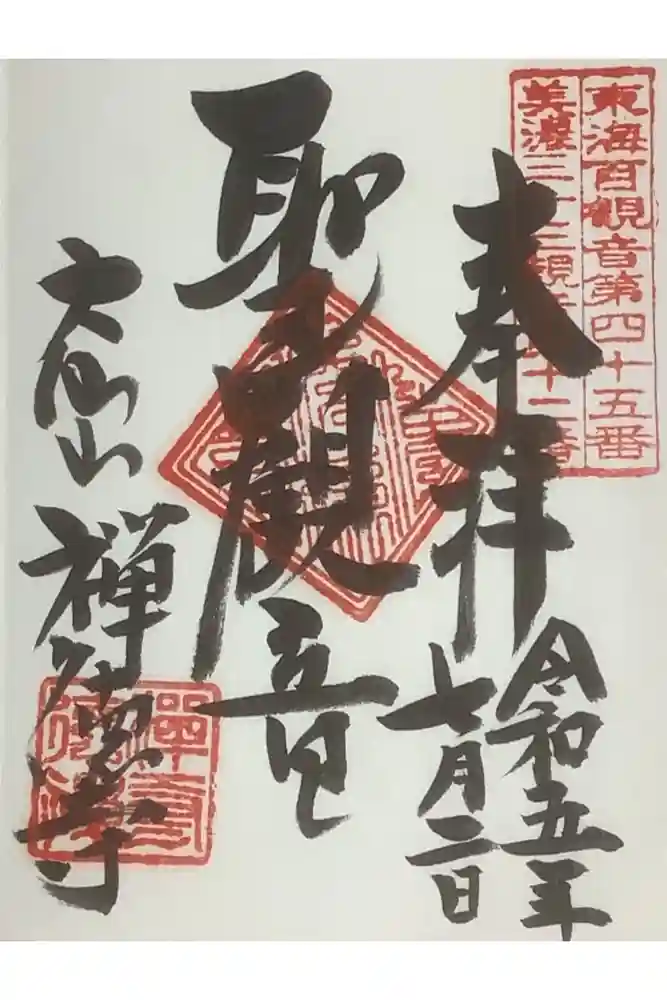 東海百観音第四十五番
美濃三十三観音第十二番
奉拝
令和五年
七月二日
聖観音
大仙山
禅徳寺